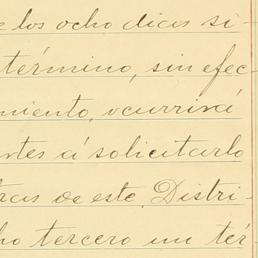 e los ocho dias si-
término, sin efec-
miento, ocurrirá
rtes á solicitarlo
ras de este Distri-
ho tercero un tér